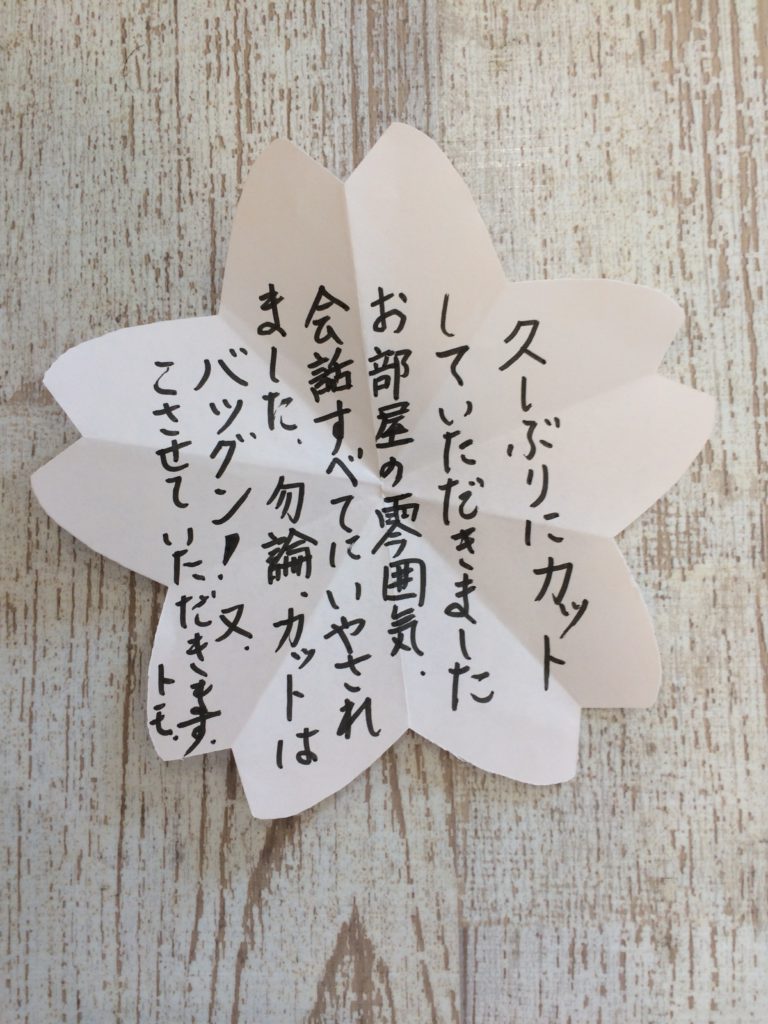 久しぶりにカット
していただきました
お部屋の雰囲気.
会話すべてにいやされ
ました、勿論、カットは
バツグン!.又.
こさせていただきます.
トモ.